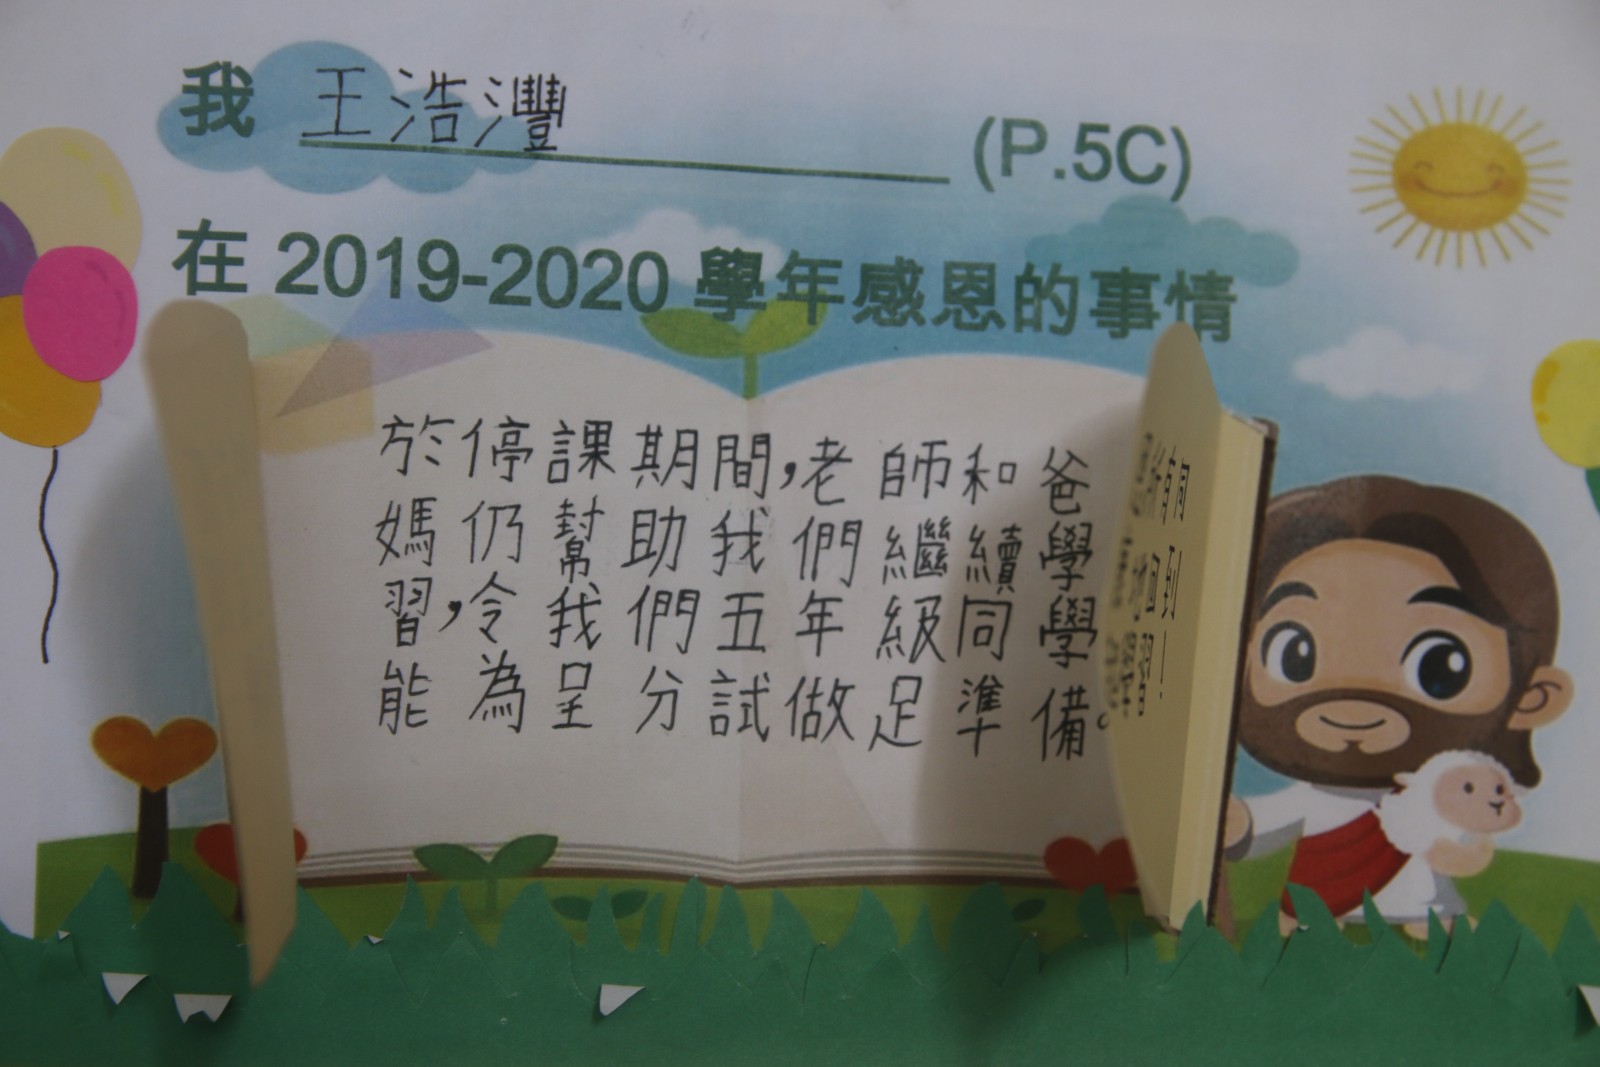 我 王浩灃 (P.5C)
在 2019-2020 學年感恩的事情
於停課期間,老師和爸
媽仍幫助我們繼續學
習,令我們五年級同學
能為呈分試做足準備。